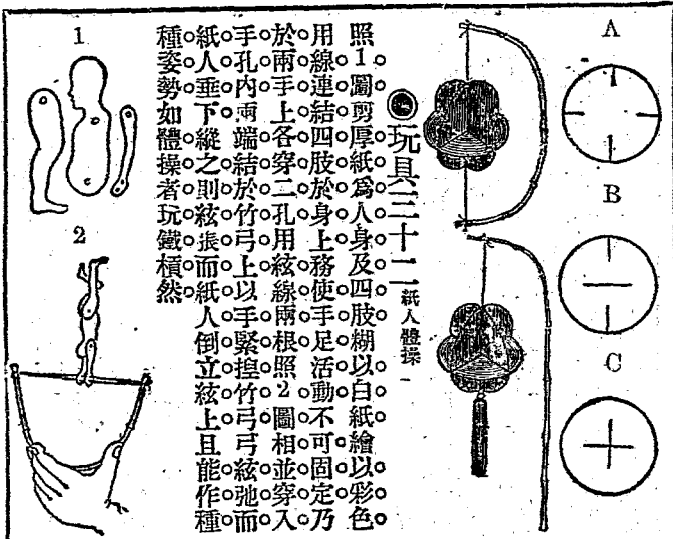 A
B
C
玩具三十二 紙人體操一
照1圖剪厚紙爲人身及四肢糊以白紙繪以彩色
用線連結四肢於身上務使手足活動不可固定乃
於兩手上各穿二孔用絃線兩根照2圖相並穿入
手孔內兩端結於竹弓上以手緊揑竹弓弓絃弛而
紙人垂下縱之則絃張而紙人倒立絃上且能作種
種姿勢如體操者玩鐵槓然
1
2